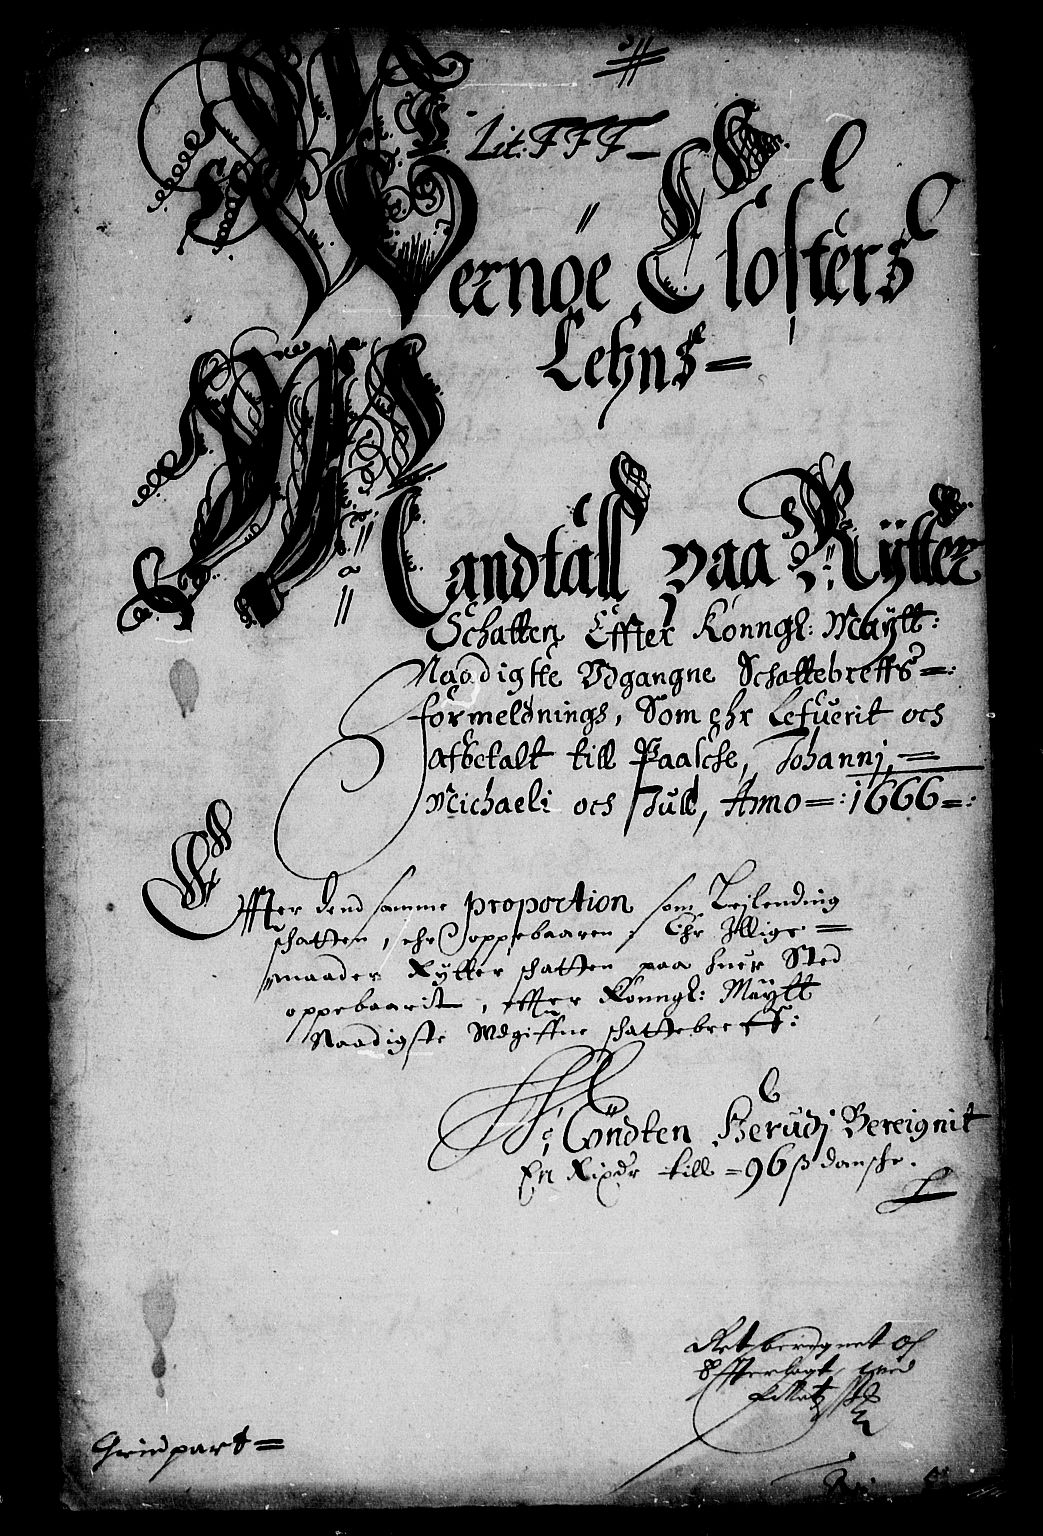 Lit: FFF
Wernöe Closters
Lehns =
Mandtall paa Rÿtter
Schatten Effter Konngl: Maÿtt:
Naadigste Vdgangne Schattebreffs =:
formeldnings, Som ehr Lefuerit och
afbetalt till Paasche, Johannj, =
Michaeli och Jull, Anno =: 1666 =:
Effter dend samme proportion som Leilending
schatten, ehr oppebaaren; Ehr Illige =
maader Rÿtter schatten paa huer Sted
oppebaarit, effter Konngl: Maÿtt
Naadigste Vdgiffne schattebreff:
Wondten Herudj Bereignit
En Rixdr till = 96 ß dansche.
Ret beregnet Og
Effterlagt, med
Grindpart =